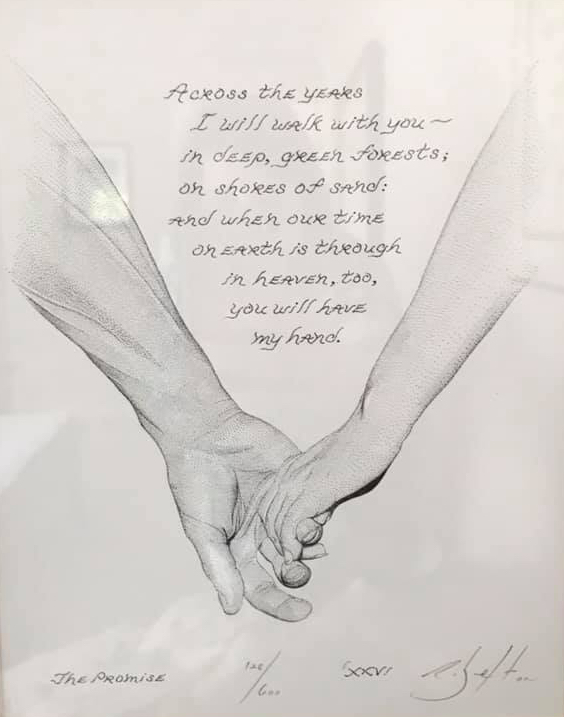 Across the years
I will walk with you~
in deep, green forests;
on shores of sand:
and when our time
on earth is through
in heaven, too,
you will have
my hand.
The Promise
/600